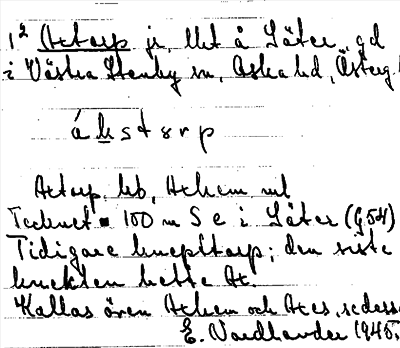 1² Aktorp jr, lht å Säter, gd
i Västra Stenby sn, Aska hd, Österg.
ákstərp
Aktorp, lb, Ackem vid
Tecknet ▪ 100 m S e i Säter (G54)
Tidigare knekttorp; den siste
knekten hette Ak.
Kallas även Ackem och Akes, se dess
E. Nordlander 1945.